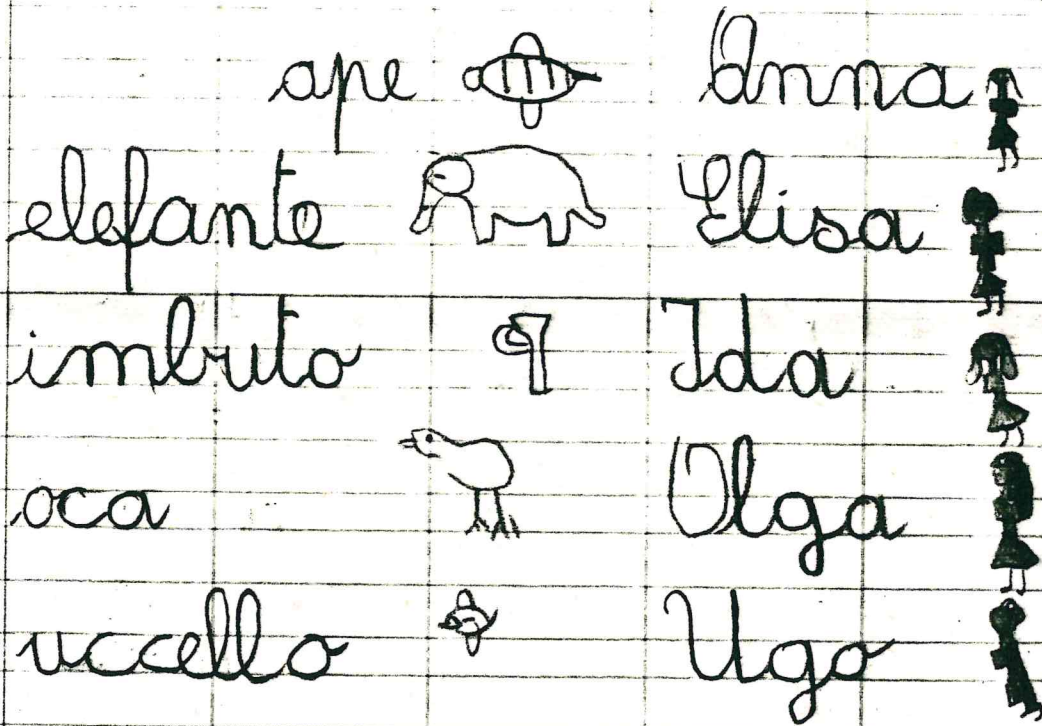 ape Anna
elefante Elisa
imbuto Ida
oca Olga
uccello Ugo